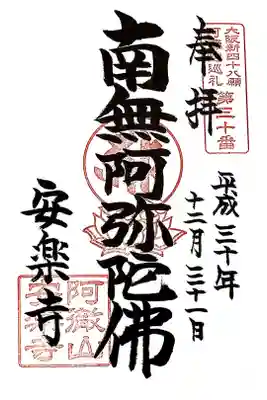 奉拝
大阪新四十八願
阿弥陀巡礼
第三十番
平成三十年
十二月三十一日
南無阿弥陀佛
安楽寺
阿嶽山
安楽寺